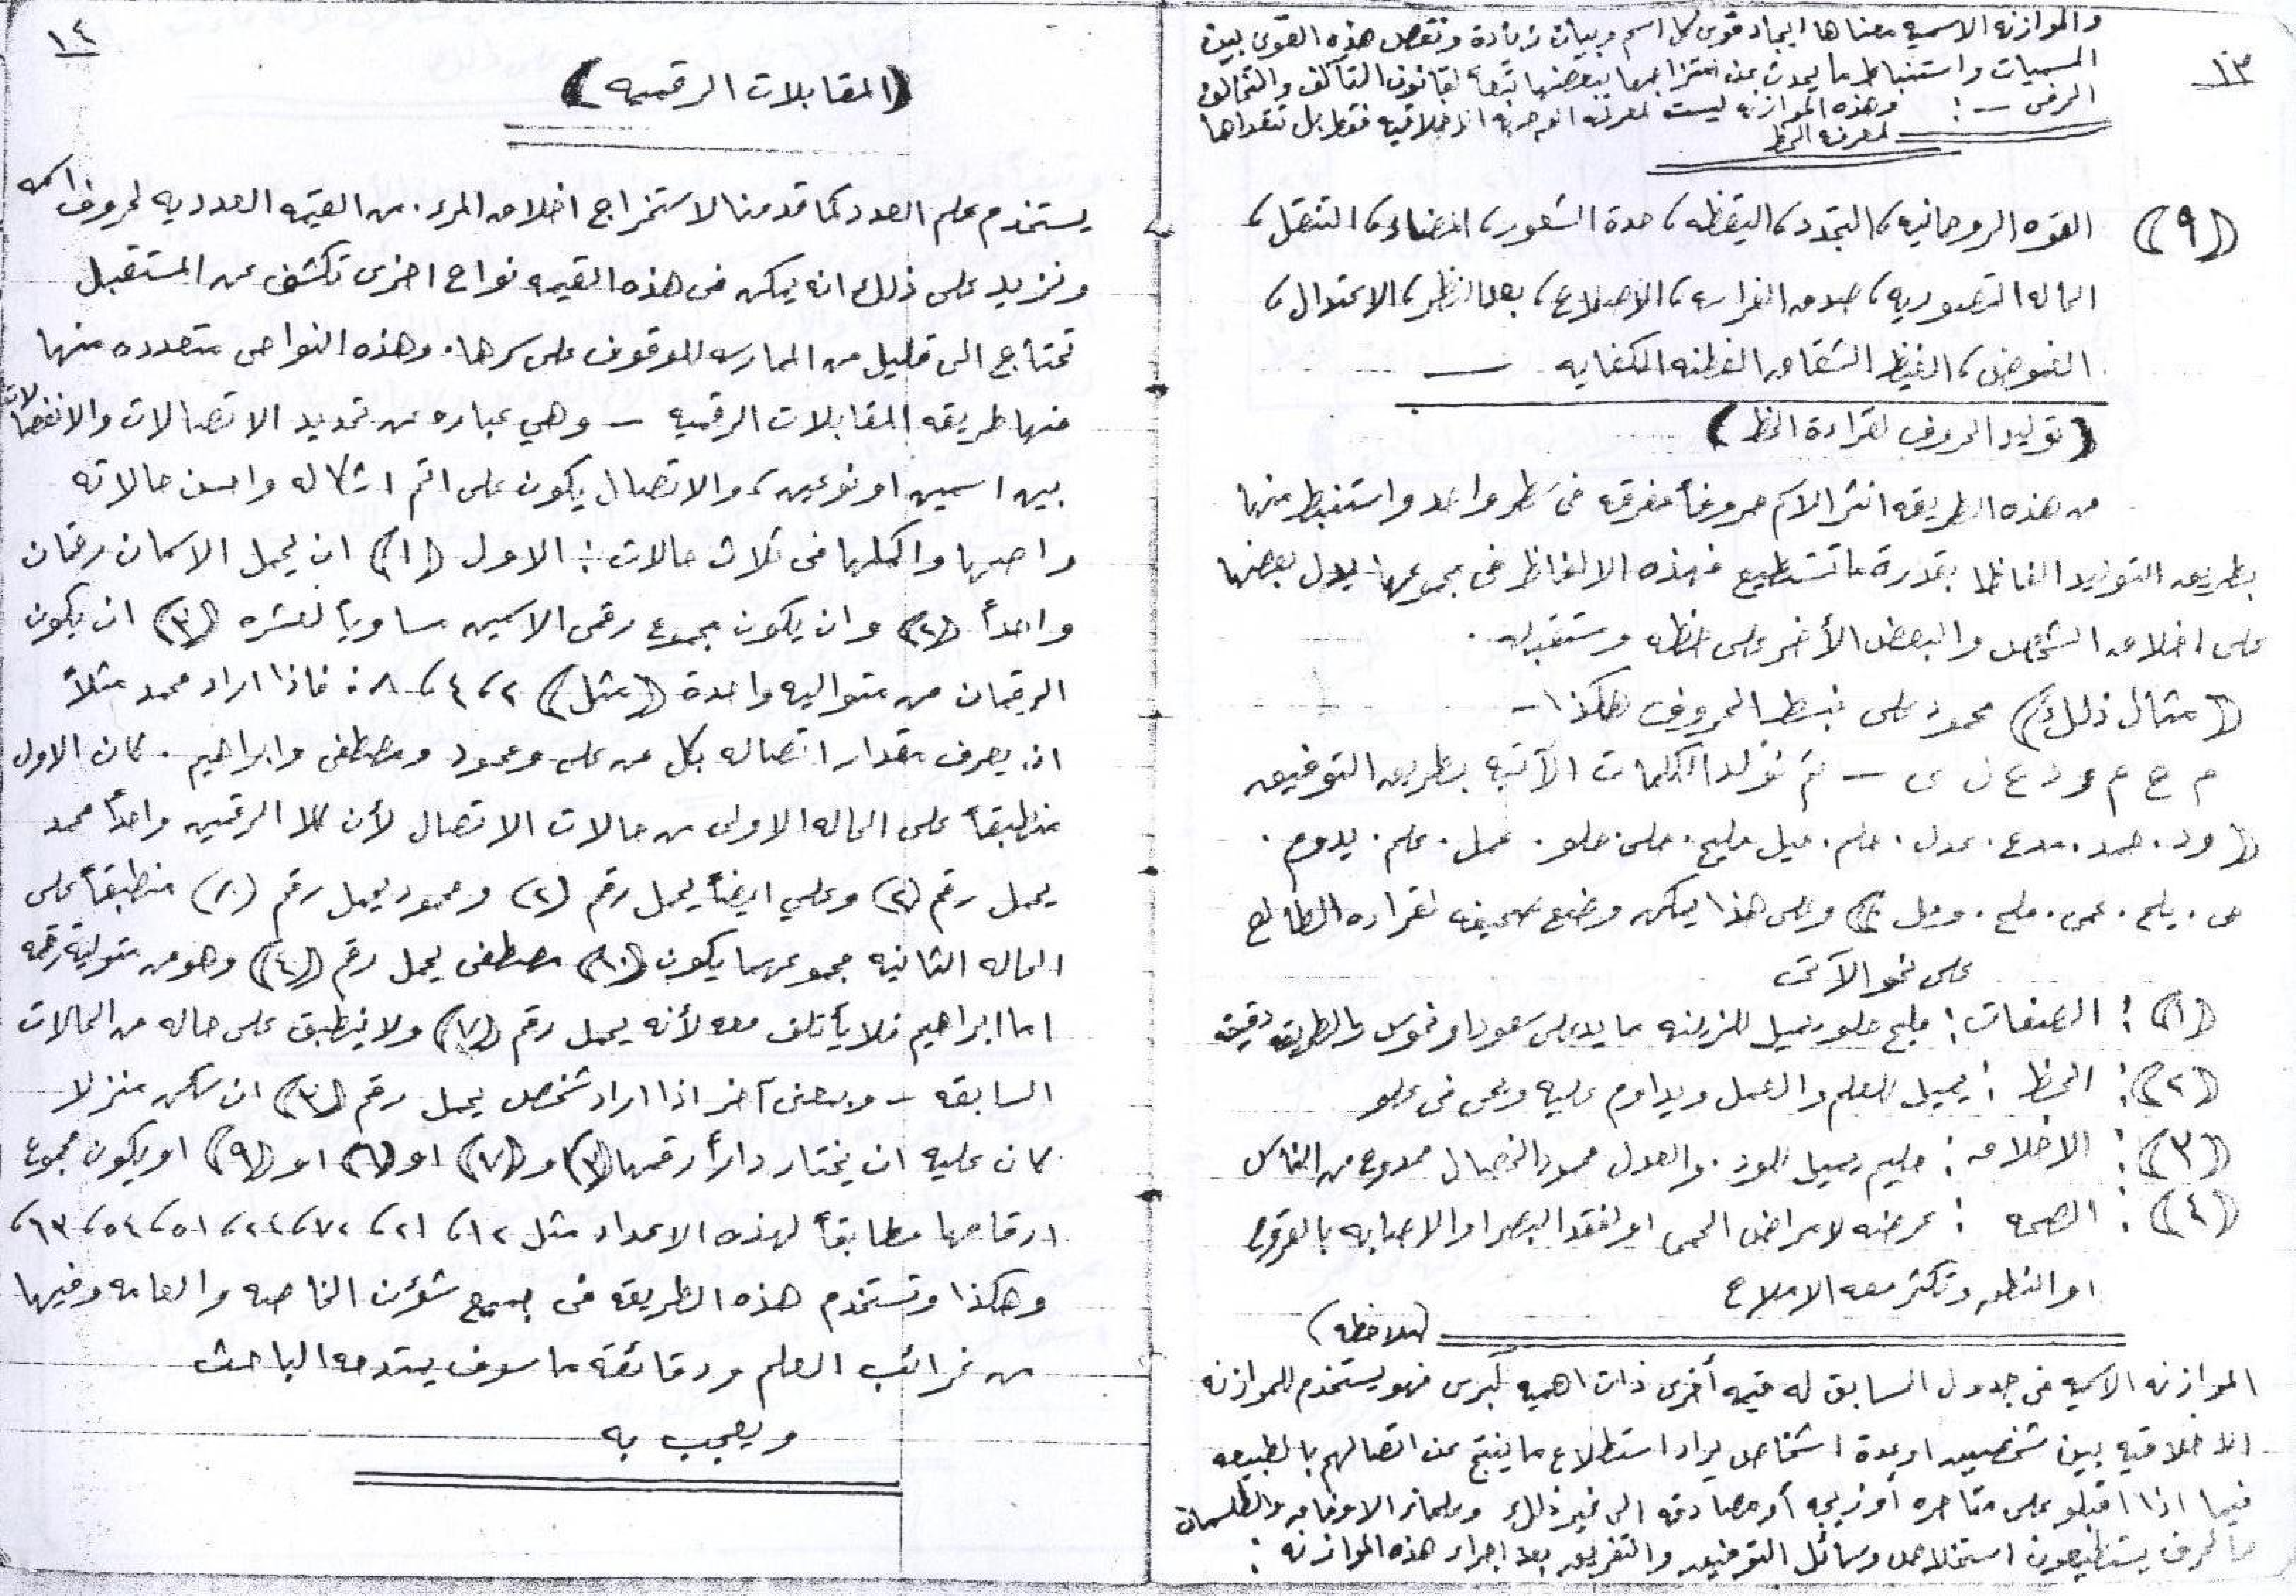 ١٣
والموازنه الاسميه معناها ايجاد قوى كل اسم وبيان زيادة ونقص هذه القوى بين
المسميات واستنباط ما يحدث عن امتزاجها ببعضها تبعاً لقانون التآلف والتخالف
الحرفى — : وهذه الموازنه ليست لمعرفة الاخلاقيه فقط بل تتعداها
لمعرفة الحظ
(٩) القوه الروحانيه، التجدد، اليقظه، حدة الشعور، المضاء، التنقل،
الحاله التصوريه، صدق الفراسه، الأصلاع، بعد النظر، الاعتدال،
الغموض، الغيظ الشقاق الفطنه الكفايه —
(توليد الحروف لقراءة الحظ)
من هذه الطريقه انثر الاسم حروفاً مفرقه فى سطر واحد واستنبط منها
بطريق التوليد الفاظا بقدرة ما تستطيع فهذه الالفاظ فى مجموعها يدل بعضها
على اخلاق الشخص والبعض الأخر على حظه ومستقبله.
(مثال ذلك) محمود على نبسط الحروف هكذا –
م ح م و د ع ل ى — ثم نولد الكلمات الآتيه بطريق التوفيق
(ود. حمد. مدع. عدل. حلم. ميل مليح. حلى حلو. عمل. علم. يدوم.
حى. يلح. عمى. ملح. وحل) وعلى هذا يمكن وضع صحيفه لقراءه الطالع
على نحو الآتى
(١): الصفات: مليح حلو يميل للزينه مما يدل على سعود او نحوس بالطريقه دقيقه
(٢): الحظ: يميل للعلم والعمل ويداوم عليه وحى فى علو
(٣): الاخلاق: حليم يميل للود. والعدل محمود الخصال ممدوح من الناس
(٤): الصحه: عرضه لامراض الحمى او لفقد البصر او الاصابه بالقروح
او وتكثر معه الاملاح
(ملاحظه)
الموازنه الاسميه فى جدول السابق له قيمه أخرى ذات اهميه كبرى فهو يستخدم للموازنه
الاخلاقيه بين شخصين او عدة اشخاص يراد استطلاع ما ينتج عن اتصالهم بالطبيعه
فيما اذا اقبلو على متاجره أو زيجه أو مصادقه الى غير ذلك وعلماء الاوفاق والطلسمات
بالحرف يستطيعون استخلاص وسائل التوفيق والتفريق بعد اجراء هذه الموازنه:
١٤
(المقابلات الرقميه)
يستخدم علم العدد كما قدمنا لاستخراج اخلاق المرء. من القيمه العدديه لحروف اسمه
ونزيد على ذلك انه يمكن فى هذه القيمه نواح اخرى تكشف عن المستقبل
تحتاج الى قليل من الممارسه للوقوف على سرها. وهذه النواحى متعدده منها
منها طريقه المقابلات الرقميه – وهي عباره عن تحديد الاتصالات والانفصالات
بين اسمين او نوعين، والاتصال يكون على اتم اشكاله واحسن حالاته
واصحها واكملها فى ثلاث حالات: الاول (١) ان يحمل الاسمان رقمان
واحداً (٢) وان يكون مجموع رقمى الاسمين مساوياً لعشره (٣) ان يكون
الرقمان من متواليه واحدة (مثل) ٢، ٤، ٨: فاذا اراد محمد مثلاً
ان يعرف مقدار اتصاله بكل من على ومحمود ومصطفى وابراهيم. كان الاول
منطبقاً على الحاله الاولى من حالات الاتصال لأن كلا الرقمين واحداً محمد
يحمل رقم (٢) وعلي ايضاً يحمل رقم (٢) ومحمود يحمل رقم (٨) منطبقاً على
الحاله الثانيه مجموعهما يكون (١٠) مصطفى يحمل رقم (٤) وهو من متوالية رقمه
اما ابراهيم فلا يأتلف معه لأنه يحمل رقم (٧) ولا ينطبق على حاله من الحالات
السابقه – وبمعنى آخر اذا اراد شخص يحمل رقم (٣) ان يسكن منزلا
كان عليه ان يختار داراً رقمها (٣) او (٧) او (٦) او (٩) او يكون مجموع
ارقامها مطابقاً لهذه الاعداد مثل ١٢، ٢١، ٧٢، ٢٤، ٥١، ٥٤، ٦٣،
وهكذا وتستخدم هذه الطريقه فى جميع شؤن الخاصه والعامه وفيها
من غرائب العلم ودقائقه ما سوف يبتدحه الباحث
ويعجب به